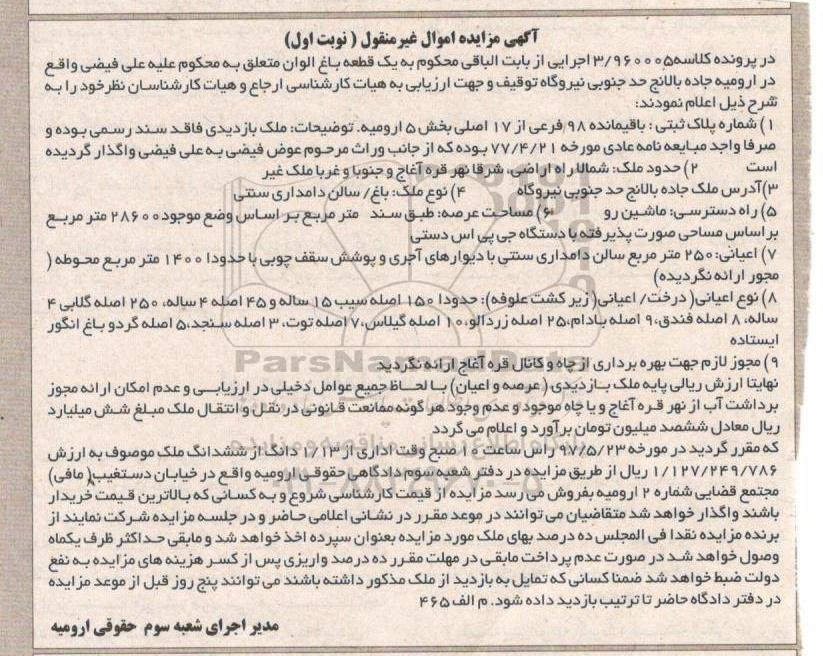 آگهی مزایده اموال غیرمنقول ( نوبت اول)
در پرونده کلاسه۳/۹۶۰۰۰۵ اجرایی از بابت الباقی محکوم به یک قطعه باغ الوان متعلق به محکوم علیه علی فیضی واقع
در ارومیه جاده بالانج حد جنوبی نیروگاه توقیف و جهت ارزیابی به هیات کارشناسی ارجاع و هیات کارشناسان نظر خود را به
شرح ذیل اعلام نمودند:
۱) شماره پلاک ثبتی : باقیمانده ۹۸ فرعی از ۱۷ اصلی بخش ۵ ارومیه. توضیحات: ملک بازدیدی فاقد سند رسمی بوده و
صرفا واجد مبایعه نامه عادی مورخه ۷۷/۴/۲۱ بوده که از جانب وراث مرحوم عوض فیضی به علی فیضی واگذار گردیده
است ۲) حدود ملک: شمالا راه اراضی، شرقا نهر قره آغاج و جنوبا و غربا ملک غیر
۳)آدرس ملک جاده بالانج حد جنوبی نیروگاه ۴) نوع ملک: باغ/ سالن دامداری سنتی
۵) راه دسترسی: ماشین رو ۶) مساحت عرصه: طبق سند متر مربع بر اساس وضع موجود ۲۸۶۰۰ متر مربع
بر اساس مساحی صورت پذیرفته با دستگاه جی پی اس دستی
۷) اعیانی: ۲۵۰ متر مربع سالن دامداری سنتی با دیوارهای آجری و پوشش سقف چوبی با حدودا ۱۴۰۰ متر مربع محوطه (
مجوز ارائه نگردیده)
۸) نوع اعیانی( درخت/ اعیانی( زیر کشت علوفه): حدودا ۱۵۰ اصله سیب ۱۵ ساله و ۴۵ اصله ۴ ساله، ۲۵۰ اصله گلابی ۴
ساله، ۸ اصله فندق، ۹ اصله بادام، ۲۵ اصله زردالو، ۱۰ اصله گیلاس، ۷ اصله توت، ۳ اصله سنجد، ۵ اصله گردو باغ انگور
ایستاده
۹) مجوز لازم جهت بهره برداری از چاه و کانال قره آغاج ارائه نگردید
نهایتا ارزش ریالی پایه ملک بازدیدی ( عرصه و اعیان) با لحاظ جمیع عوامل دخیلی در ارزیابی و عدم امکان ارائه مجوز
برداشت آب از نهر قره آغاج و یا چاه موجود و عدم وجود هر گونه ممانعت قانونی در نقل و انتقال ملک مبلغ شش میلیارد
ریال معادل ششصد میلیون تومان برآورد و اعلام می گردد
که مقرر گردید در مورخه ۹۷/۵/۲۳ راس ساعت ۱۰ صبح وقت اداری از ۱/۱۳ دانگ از ششدانگ ملک موصوف به ارزش
۱/۱۲۷/۲۴۹/۷۸۶ ریال از طریق مزایده در دفتر شعبه سوم دادگاهی حقوقی ارومیه واقع در خیابان دستغیب( مافی)
مجتمع قضایی شماره ۲ ارومیه بفروش می رسد مزایده از قیمت کارشناسی شروع و به کسانی که بالاترین قیمت خریدار
باشند واگذار خواهد شد متقاضیان می توانند در موعد مقرر در نشانی اعلامی حاضر و در جلسه مزایده شرکت نمایند از
برنده مزایده نقدا فی المجلس ده درصد بهای ملک مورد مزایده بعنوان سپرده اخذ خواهد شد و مابقی حداکثر ظرف یکماه
وصول خواهد شد در صورت عدم پرداخت مابقی در مهلت مقرر ده درصد واریزی پس از کسر هزینه های مزایده به نفع
دولت ضبط خواهد شد ضمنا کسانی که تمایل به بازدید از ملک مذکور داشته باشند می توانند پنج روز قبل از موعد مزایده
در دفتر دادگاه حاضر تا ترتیب بازدید داده شود. م الف ۴۶۵
مدیر اجرای شعبه سوم حقوقی ارومیه
ParsNamadData